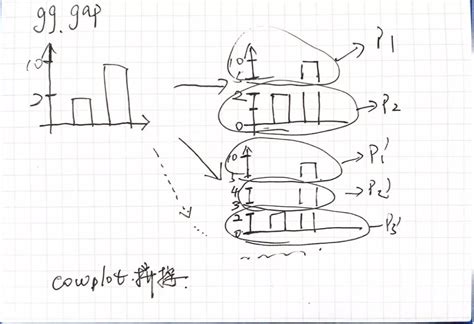 gg.gap
10
2
10
5
P1
2
0
P2
10
5
P1'
4
3
P2'
2
0
P3'
cowplot 拼接